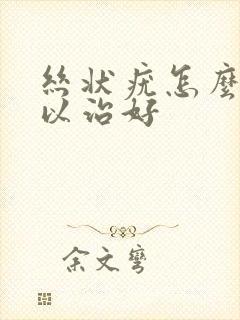 絲狀疣怎麼
以治好
余文彎